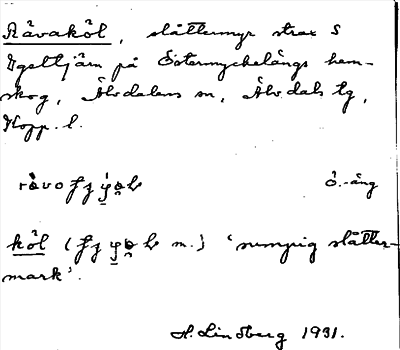 Råvaköl, slåttermyr strax S
Ögeltjärn på Östermyckelängs hem-
skog, Älvdalens sn, Älvdals tg,
Kopp. l.
ö.-äng
köl ( m.) 'sumpig slåtter-
mark'.
H. Lindberg 1931.